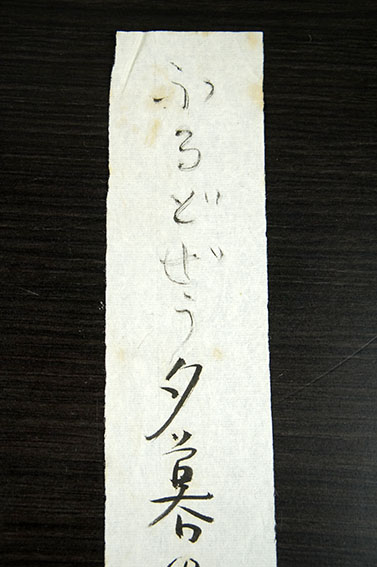 ふるどぜう夕暮の